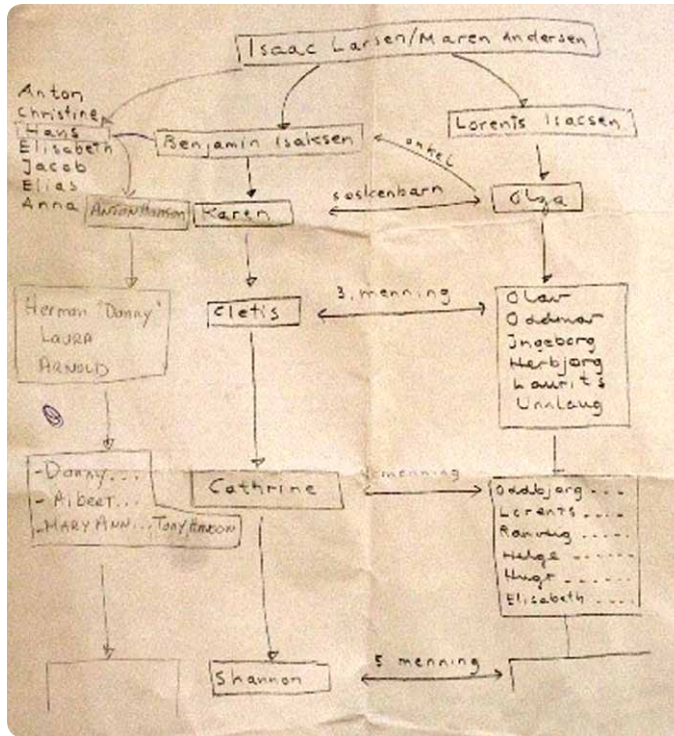 Isaac Larsen/Maren Andersen
Anton
Christine
Hans
Elisabeth
Jacob
Elias
Anna
Benjamin Isaksen
Lorents Isacsen
onkel
ANTON HANSON
Karen
søskenbarn
Olga
Herman "Danny"
LAURA
ARNOLD
Cletis
3. menning
Olav
Oddmar
Ingeborg
Herbjørg
Laurits
Unnlaug
-Danny...
-Albert...
-MARY ANN... Tony HANSON
Cathrine
menning
Oddbjørg ....
Lorents ....
Ranveig ....
Helge ....
Hugo ......
Elisabeth ....
Shannon
5 menning